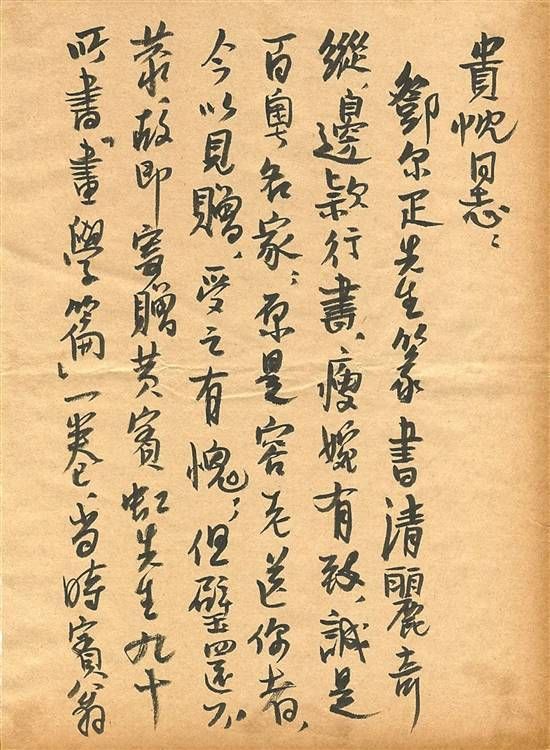 貴忱同志：
鄧尔疋先生篆書清麗奇
縱、邊款行書、瘦婉有致、誠是
百粤名家；原是容老送你者、
今以見贈、受之有愧；但璧還不
恭、故即寄贈黄賓虹先生九十
所書「畫學篇」一卷、当時賓翁